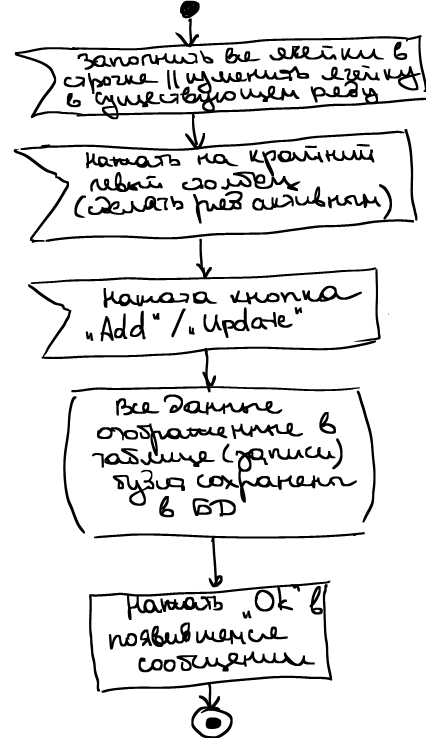 Заполнить все ячейки в
строчке || изменить ячейку
в существующем ряду
Нажать на крайний
левый столбец
(сделать ряд активным)
Нажата кнопка
„Add" / „Update"
Все данные
отображенные в
таблице (записи)
будут сохранены
в БД
Нажать „Ok" в
появившемся
сообщении